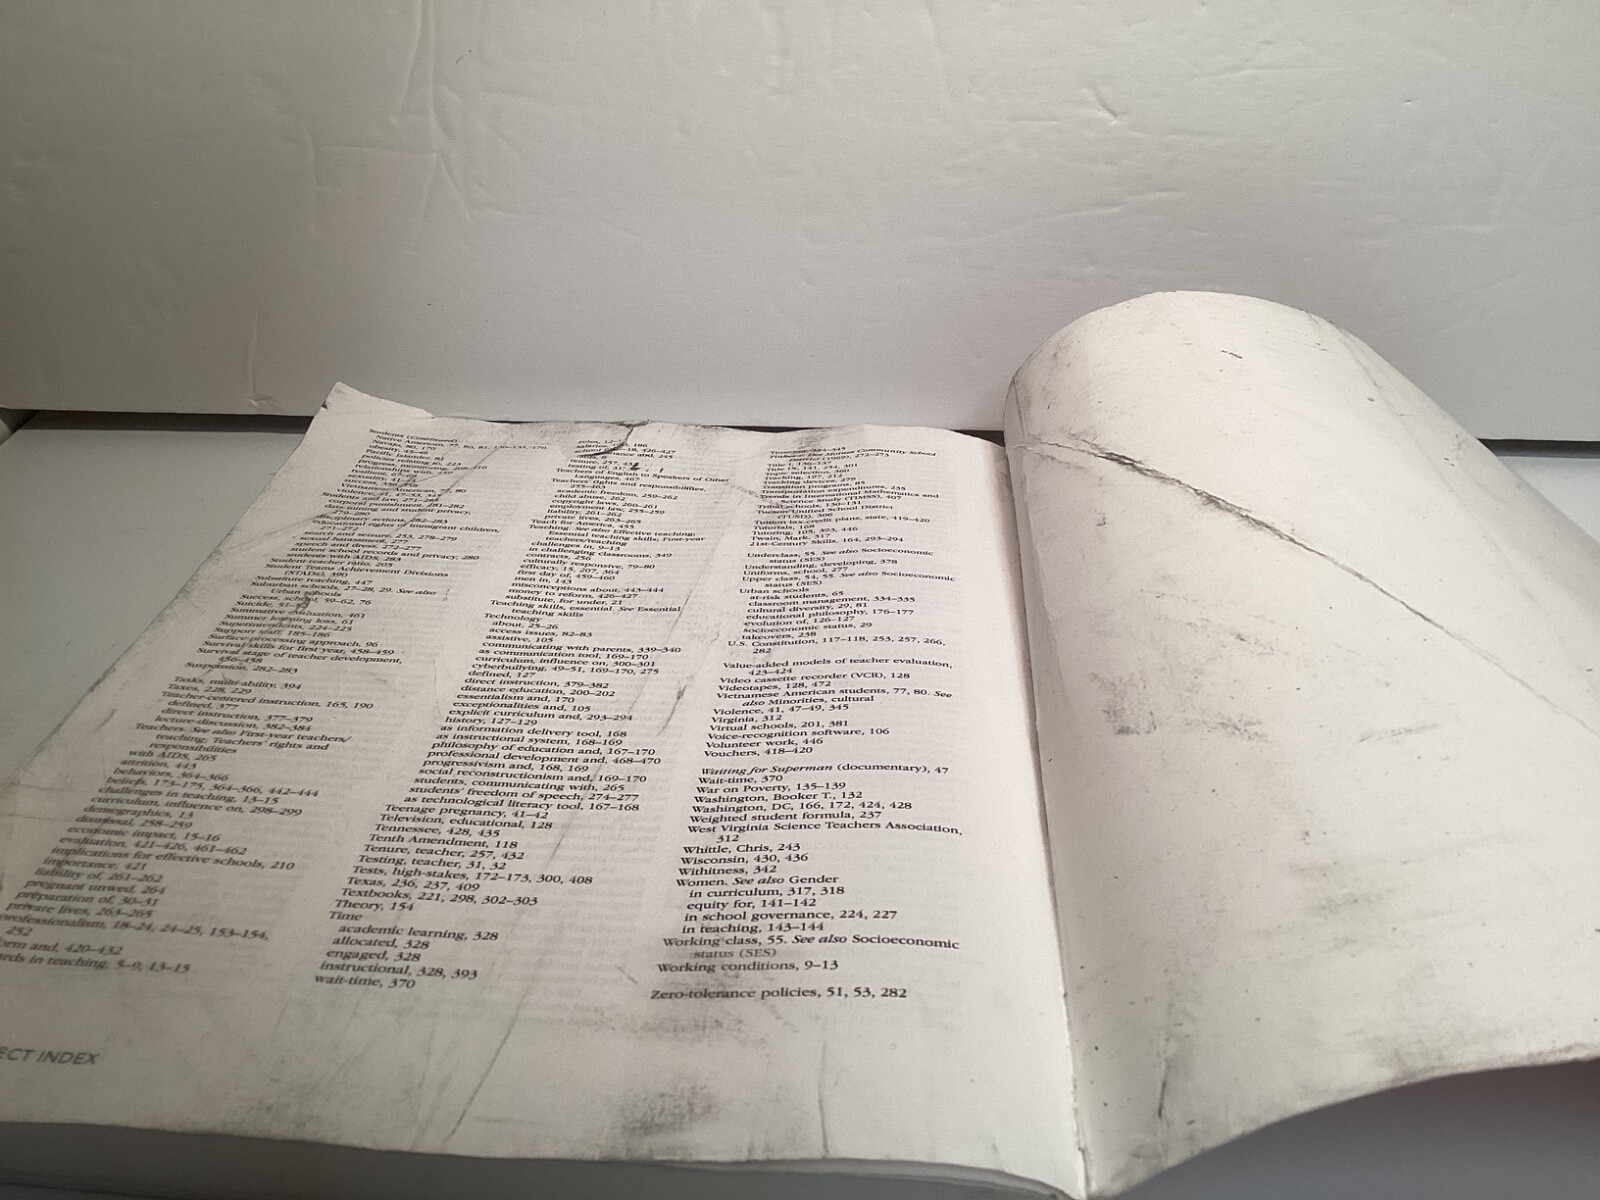 Students (Continued)
Native American, 77, 80, 81, 130–131, 170
Navajo, 80, 170
obesity, 45–46
Pacific Islander, 81
policies relating to, 223
progress, monitoring, 208–210
relationships with
resilient, 67–68
sexuality, 41–43
success,
Vietnamese American, 77, 80
violence, 41, 47–53, 345
Students and law, 271–283
corporal punishment, 281–282
data mining and student privacy,
279–280
disciplinary actions, 282–283
educational rights of immigrant children,
271–272
search and seizure, 253, 278–279
sexual harassment, 277
speech and dress, 272–277
student school records and privacy, 280
students with AIDS, 283
Student-teacher ratio, 205
Student Teams Achievement Divisions
(STADs), 390
Substitute teaching, 447
Suburban schools, 27–28, 29. See also
Urban schools
Success, school, 59–62, 76
Suicide, 51–53
Summative evaluation, 461
Summer learning loss, 61
Superintendents, 224–225
Support staff, 185–186
Surface-processing approach, 96
Survival skills for first year, 458–459
Survival stage of teacher development,
456–458
Suspension, 282–283
Tasks, multi-ability, 394
Taxes, 228, 229
Teacher-centered instruction, 165, 190
defined, 377
direct instruction, 377–379
lecture-discussion, 382–384
Teachers. See also First-year teachers/
teaching; Teachers' rights and
responsibilities
with AIDS, 265
attrition, 443
behaviors, 364–366
beliefs, 173–175, 364–366, 442–444
challenges in teaching, 13–15
curriculum, influence on, 298–299
demographics, 13
dismissal, 258–259
economic impact, 15–16
evaluation, 421–426, 461–462
implications for effective schools, 210
importance, 421
liability of, 261–262
pregnant unwed, 264
preparation of, 30–31
private lives, 263–265
professionalism, 18–24, 24–25, 153–154,
252
orm and, 420–432
rds in teaching, 5–9, 13–15
roles, 12–
salaries, 186
school –18, 426–427
ance and, 245
tenure, 257, 432
testing of, 31
Teachers of English to Speakers of Other
Languages, 467
Teachers' rights and responsibilities,
255–265
academic freedom, 259–262
child abuse, 262
copyright laws, 260–261
employment law, 255–259
liability, 261–262
private lives, 263–265
Teach for America, 455
Teaching. See also Effective teaching;
Essential teaching skills; First-year
teachers/teaching
challenges in, 9–13
in challenging classrooms, 349
contracts, 256
culturally responsive, 79–80
efficacy, 15, 207, 364
first day of, 459–460
men in, 143
misconceptions about, 443–444
money to reform, 426–427
substitute, for under, 21
Teaching skills, essential. See Essential
teaching skills
Technology
about, 25–26
access issues, 82–83
assistive, 105
communicating with parents, 339–340
as communication tool, 169–170
curriculum, influence on, 300–301
cyberbullying, 49–51, 169–170, 275
defined, 127
direct instruction, 379–382
distance education, 200–202
essentialism and, 170
exceptionalities and, 105
explicit curriculum and, 293–294
history, 127–129
as information delivery tool, 168
as instructional system, 168–169
philosophy of education and, 167–170
professional development and, 468–470
progressivism and, 168, 169
social reconstructionism and, 169–170
students, communicating with, 265
students' freedom of speech, 274–277
as technological literacy tool, 167–168
Teenage pregnancy, 41–42
Television, educational, 128
Tennessee, 428, 435
Tenth Amendment, 118
Tenure, teacher, 257, 432
Testing, teacher, 31, 32
Tests, high-stakes, 172–173, 300, 408
Texas, 236, 237, 409
Textbooks, 221, 298, 302–303
Theory, 154
Time
academic learning, 328
allocated, 328
engaged, 328
instructional, 328, 393
wait-time, 370
Time-out, 344–345
Tinker v. Des Moines Community School
District (1969), 272–273
Title I, 136–137
Title IX, 141, 254, 301
Topic selection, 360
Tracking, 197, 212
Tracking devices, 279
Transition programs, 85
Transportation expenditures, 235
Trends in International Mathematics and
Science Study (TIMSS), 407
Tribal schools, 130–131
Tucson Unified School District
(TUSD), 306
Tuition tax-credit plans, state, 419–420
Tutorials, 168
Tutoring, 105, 393, 446
Twain, Mark, 317
21st-Century Skills, 164, 293–294
Underclass, 55. See also Socioeconomic
status (SES)
Understanding, developing, 378
Uniforms, school, 277
Upper class, 54, 55. See also Socioeconomic
status (SES)
Urban schools
at-risk students, 65
classroom management, 334–335
cultural diversity, 29, 81
educational philosophy, 176–177
evolution of, 126–127
socioeconomic status, 29
takeovers, 238
U.S. Constitution, 117–118, 253, 257, 266,
282
Value-added models of teacher evaluation,
423–424
Video cassette recorder (VCR), 128
Videotapes, 128, 472
Vietnamese American students, 77, 80. See
also Minorities, cultural
Violence, 41, 47–49, 345
Virginia, 312
Virtual schools, 201, 381
Voice-recognition software, 106
Volunteer work, 446
Vouchers, 418–420
Waiting for Superman (documentary), 47
Wait-time, 370
War on Poverty, 135–139
Washington, Booker T., 132
Washington, DC, 166, 172, 424, 428
Weighted student formula, 237
West Virginia Science Teachers Association,
312
Whittle, Chris, 243
Wisconsin, 430, 436
Withitness, 342
Women. See also Gender
in curriculum, 317, 318
equity for, 141–142
in school governance, 224, 227
in teaching, 143–144
Working class, 55. See also Socioeconomic
status (SES)
Working conditions, 9–13
Zero-tolerance policies, 51, 53, 282
ECT INDEX